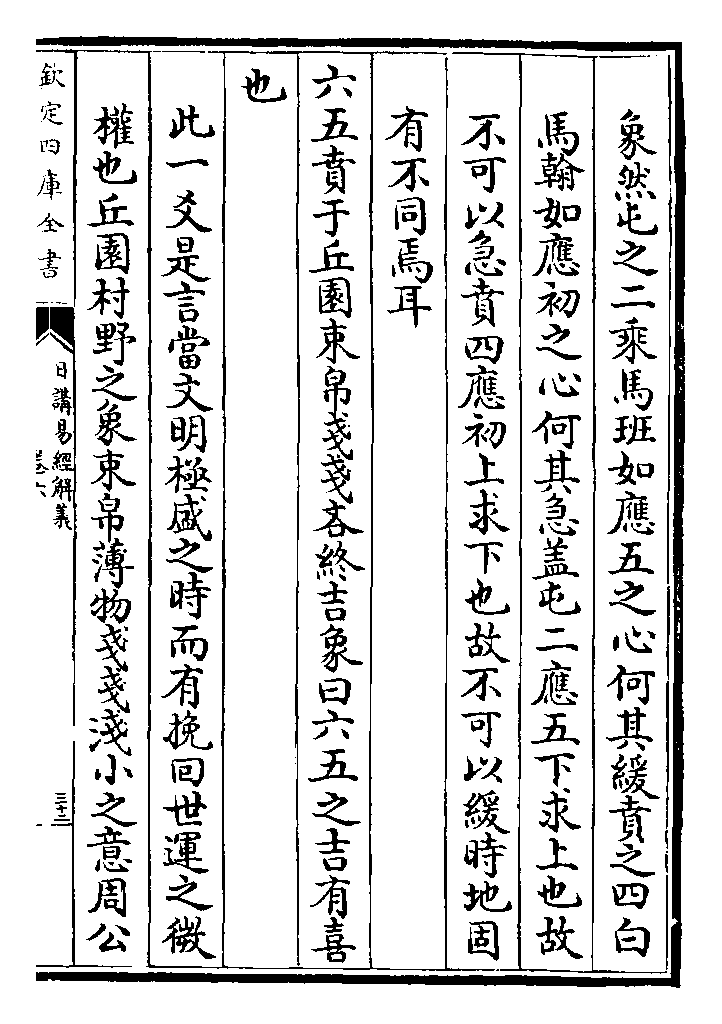 象然屯之二乘馬班如應五之心何其緩賁之四白
馬翰如應初之心何其急盖屯二應五下求上也故
不可以急賁四應初上求下也故不可以緩時地固
有不同焉耳
六五賁于丘園束帛戔戔吝終吉象曰六五之吉有喜
也
此一爻是言當文明極盛之時而有挽回世運之微
權也丘園村野之象束帛薄物戔戔淺小之意周公
欽定四庫全書
日講易經解義
卷六
三十三